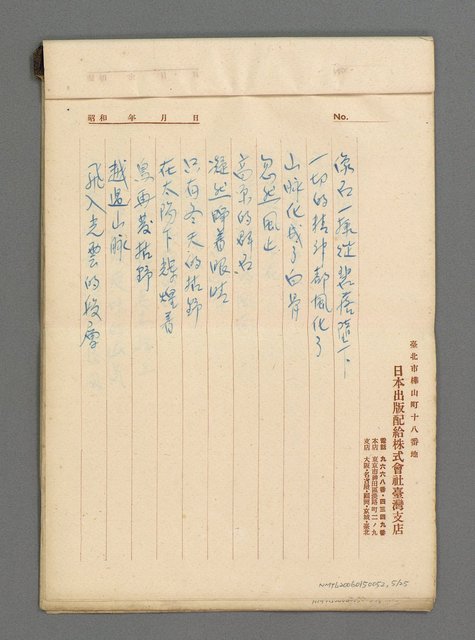 No.
昭和　年　月　日
像石一样從裂落塵下
一切的精神都風化了
山脈化成了白骨
忽然風止
高原的群石
凝然睜着眼睛
只有冬天的枯野
在太陽下輝煌着
黑鳥飛枯野
越過山脈
飛入光雲的段層
臺北市樺山町十八番地
日本出版配給株式會社臺灣支店
電話 九六六八番・四三四九番
本店 東京市神田區淡路町二ノ九
支店 大阪・名古屋・福岡・京城・臺北
NMTL20060150052, 5/25